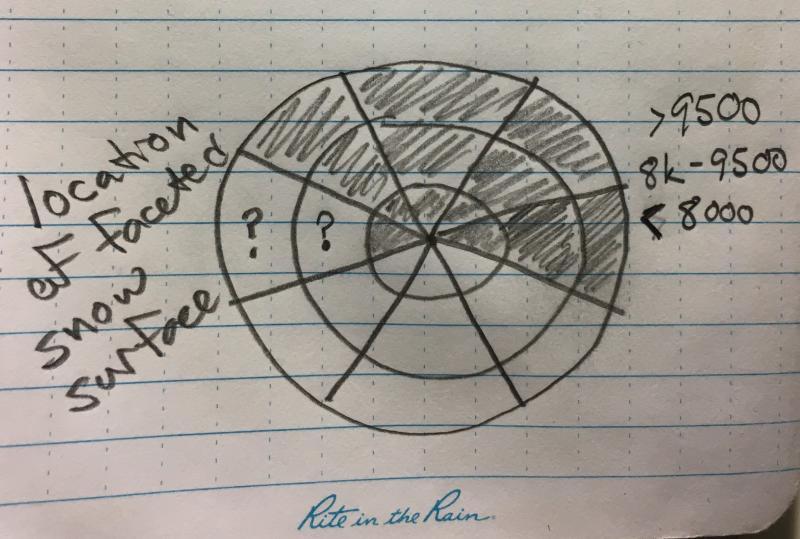 location
of faceted
snow
surface
? ?
>9500
8k-9500
< 8000
Rite in the Rain